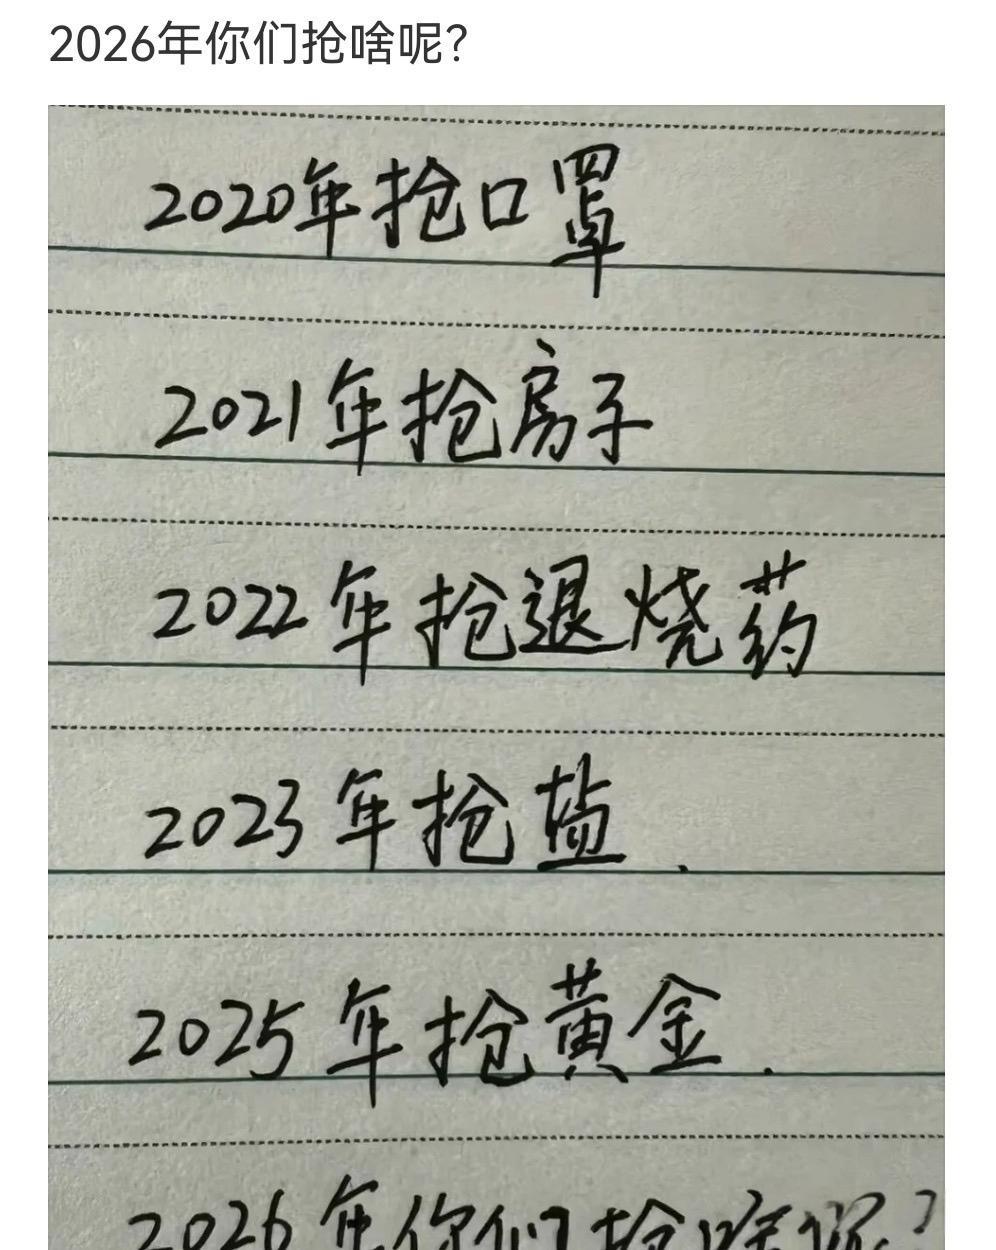 2026年你们抢啥呢?
2020年抢口罩
2021年抢房子
2022年抢退烧药
2023年抢盐.
2025年抢黄金.
2026年你们抢啥呢?